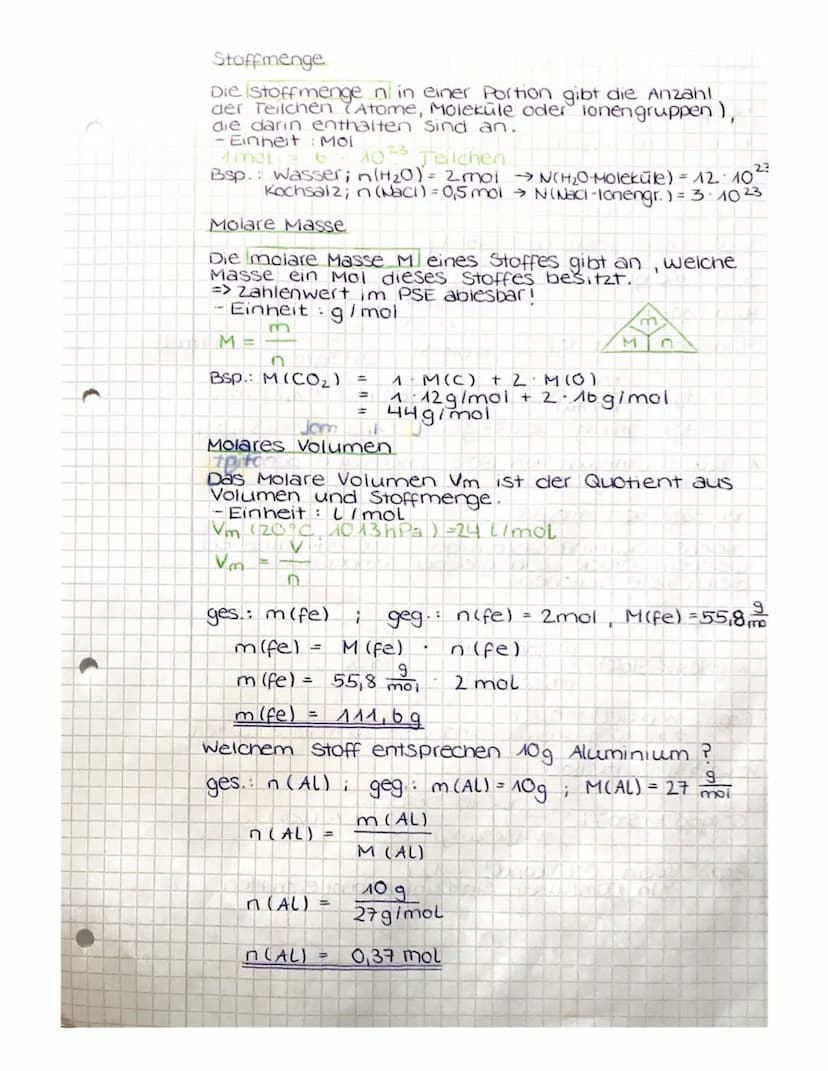 Stoffmenge
Die Stoffmenge n in einer Portion gibt die Anzahl
der Teilchen (Atome, Moleküle oder Ionengruppen),
die darin enthalten sind an.
- Einheit : Mol
1mol = 6 · 10²³ Teilchen
Bsp.: Wasser; n(H₂O) = 2mol → N(H₂O-Moleküle) = 12 · 10²³
Kochsalz; n(NaCl) = 0,5 mol → N(NaCl-Ionengr.) = 3 · 10²³
Molare Masse
Die molare Masse M eines Stoffes gibt an, welche
Masse ein Mol dieses Stoffes besitzt.
=> Zahlenwert im PSE ablesbar!
- Einheit : g/mol
M = m/n
m
M n
Bsp.: M(CO₂) = 1 · M(C) + 2 · M(O)
= 1 · 12g/mol + 2 · 16g/mol
= 44g/mol
Molares Volumen
Das Molare Volumen Vm ist der Quotient aus
Volumen und Stoffmenge.
- Einheit : L/mol
Vm (20°C, 1013hPa) = 24 L/mol
Vm = V/n
ges.: m(fe) ; geg.: n(fe) = 2mol , M(fe) = 55,8 g/mo
m(fe) = M(fe) · n(fe)
m(fe) = 55,8 g/mol · 2 mol
m(fe) = 111,6g
Welchem Stoff entsprechen 10g Aluminium ?
ges.: n(AL) ; geg.: m(AL) = 10g ; M(AL) = 27 g/mol
n(AL) = m(AL)/M(AL)
n(AL) = 10g/27g/mol
n(AL) = 0,37 mol